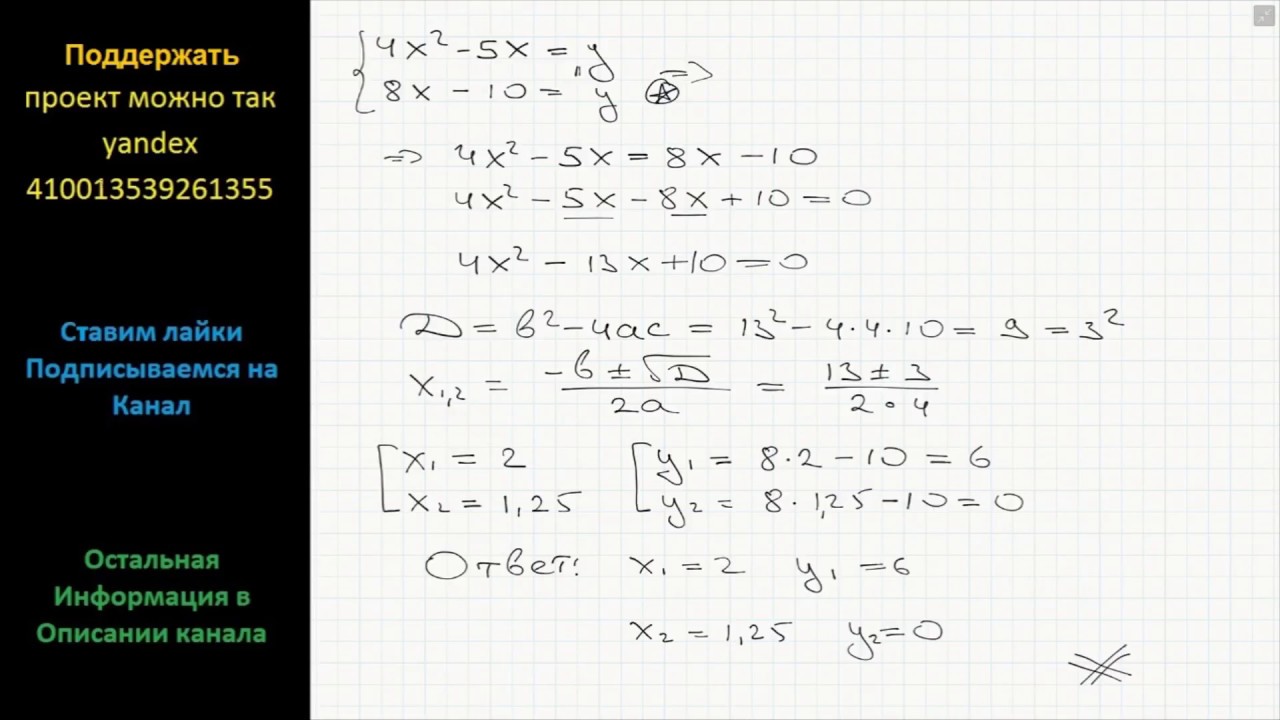 Поддержать
проект можно так
yandex
410013539261355
Ставим лайки
Подписываемся на
Канал
Остальная
Информация в
Описании канала
4x² - 5x = y
8x - 10 = y ⊛ =>
=> 4x² - 5x = 8x - 10
4x² - 5x - 8x + 10 = 0
4x² - 13x + 10 = 0
D = b² - 4ac = 13² - 4·4·10 = 9 = 3²
x₁,₂ = (-b ± √D)/(2a) = (13 ± 3)/(2·4)
[x₁ = 2 [y₁ = 8·2 - 10 = 6
x₂ = 1,25 y₂ = 8·1,25 - 10 = 0
Ответ: x₁ = 2 y₁ = 6
x₂ = 1,25 y₂ = 0